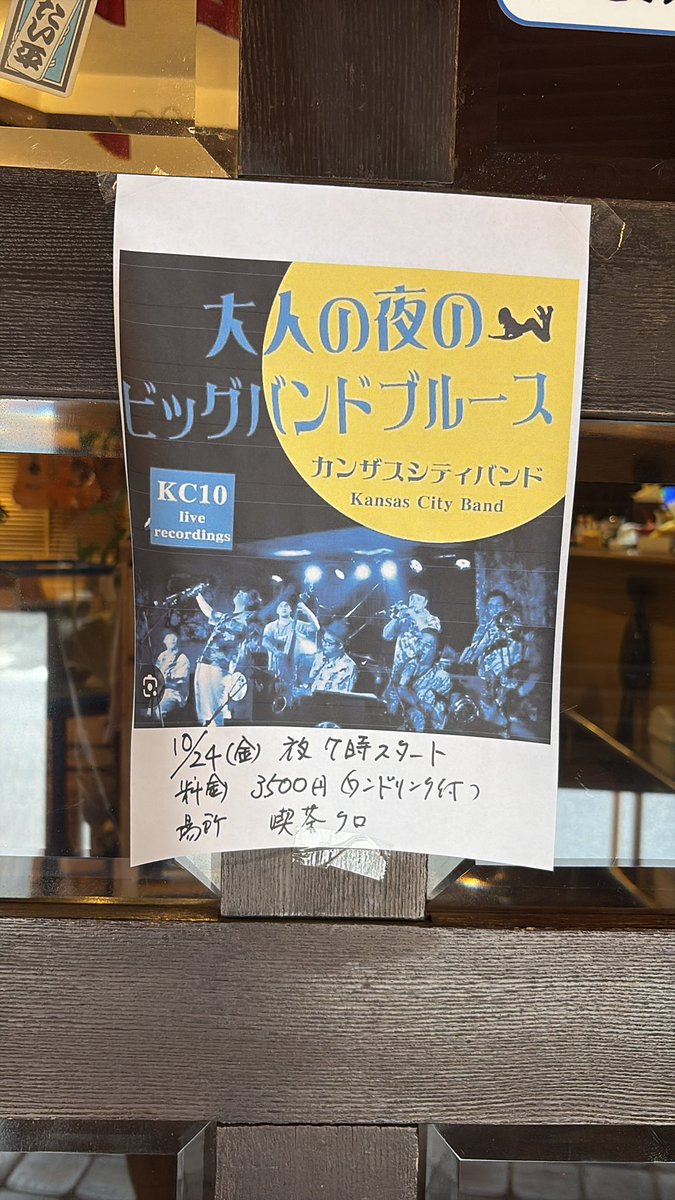 たい平
大人の夜の
ビッグバンドブルース
カンザスシティバンド
Kansas City Band
KC10
live
recordings
10/24(金) 夜 7時スタート
料金 3500円 (ワンドリンク付)
場所 喫茶クロ